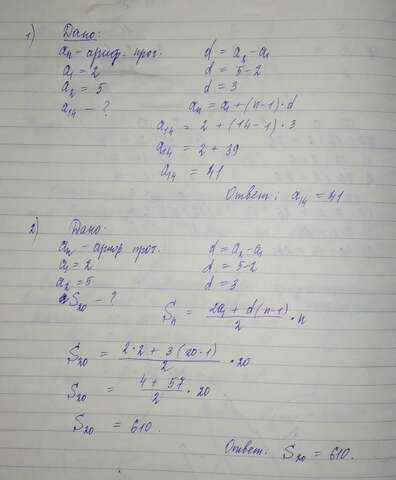 1) Дано:
aₙ - арифм. прог. d = a₂ - a₁
a₁ = 2 d = 5 - 2
a₂ = 5 d = 3
a₁₄ - ? aₙ = a₁ + (n-1) · d
a₁₄ = 2 + (14-1) · 3
a₁₄ = 2 + 39
a₁₄ = 41
Ответ: a₁₄ = 41
2) Дано:
aₙ - арифм прог. d = a₂ - a₁
a₁ = 2 d = 5-2
a₂ = 5 d = 3
S₂₀ - ? Sₙ = (2a₁ + d(n-1))/2 · n
S₂₀ = (2·2 + 3(20-1))/2 · 20
S₂₀ = (4 + 57)/2 · 20
S₂₀ = 610.
Ответ: S₂₀ = 610.